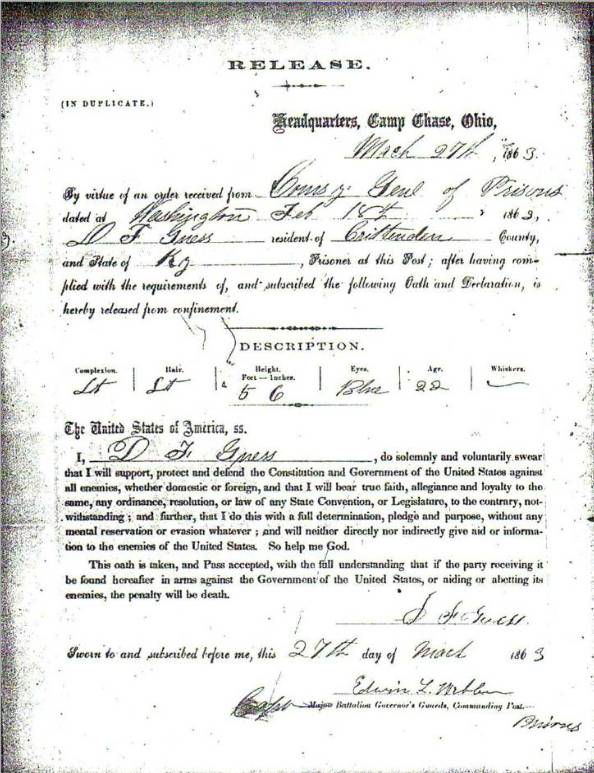 RELEASE.
(IN DUPLICATE.)
Headquarters, Camp Chase, Ohio,
Mach 27th, 1863.
By virtue of an order received from Comsy Genl of Prisons
dated at Washington Feb 18th, 1863,
D F Guess resident of Crittenden County,
and State of Ky, Prisoner at this Post; after having com-
plied with the requirements of, and subscribed the following Oath and Declaration, is
hereby released from confinement.
DESCRIPTION.
Complexion. Hair. Height. Eyes. Age. Whiskers.
Feet—Inches.
Lt Lt 5 6 Blue 22
The United States of America, ss.
I, D F Guess, do solemnly and voluntarily swear
that I will support, protect and defend the Constitution and Government of the United States against
all enemies, whether domestic or foreign, and that I will bear true faith, allegiance and loyalty to the
same, any ordinance, resolution, or law of any State Convention, or Legislature, to the contrary, not-
withstanding; and further, that I do this with a full determination, pledge and purpose, without any
mental reservation or evasion whatever; and will neither directly nor indirectly give aid or informa-
tion to the enemies of the United States. So help me God.
This oath is taken, and Pass accepted, with the full understanding that if the party receiving it
be found hereafter in arms against the Government of the United States, or aiding or abetting its
enemies, the penalty will be death.
F Guess
Sworn to and subscribed before me, this 27th day of Mach 1863
Edwin L. Webber
Capt Major Battalion Governor's Guards, Commanding Post.